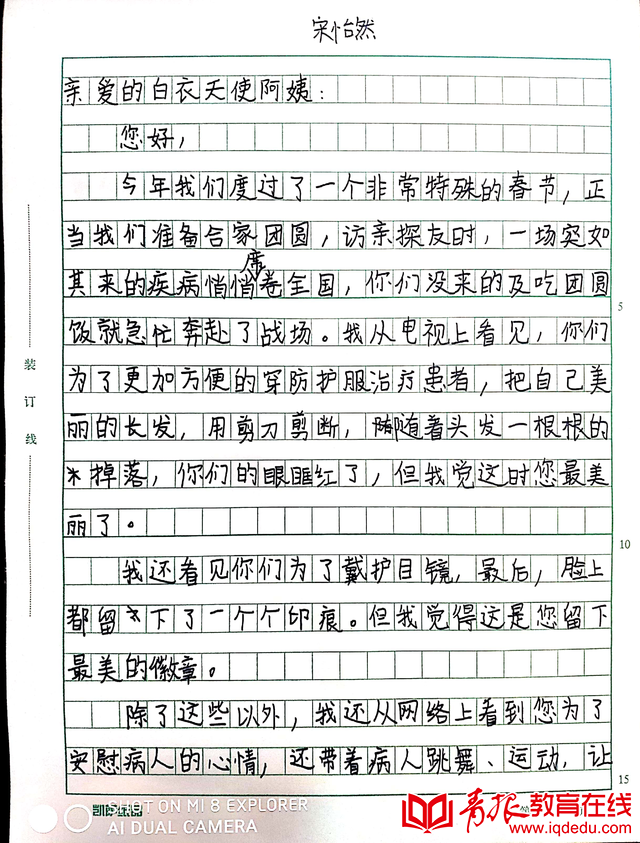 宋怡然
亲爱的白衣天使阿姨：
您好，
今年我们度过了一个非常特殊的春节，正
当我们准备合家团圆，访亲探友时，一场突如
其来的疾病悄悄席卷全国，你们没来的及吃团圆
饭就急忙奔赴了战场。我从电视上看见，你们
为了更加方便的穿防护服治疗患者，把自己美
丽的长发，用剪刀剪断，随着头发一根根的
掉落，你们的眼眶红了，但我觉这时您最美
丽了。
我还看见你们为了戴护目镜，最后，脸上
都留下了一个个印痕。但我觉得这是您留下
最美的徽章。
除了这些以外，我还从网络上看到您为了
安慰病人的心情，还带着病人跳舞、运动，让
装订线
5
10
15
SHOT ON MI 8 EXPLORER
AI DUAL CAMERA
青报教育在线
www.iqdedu.com